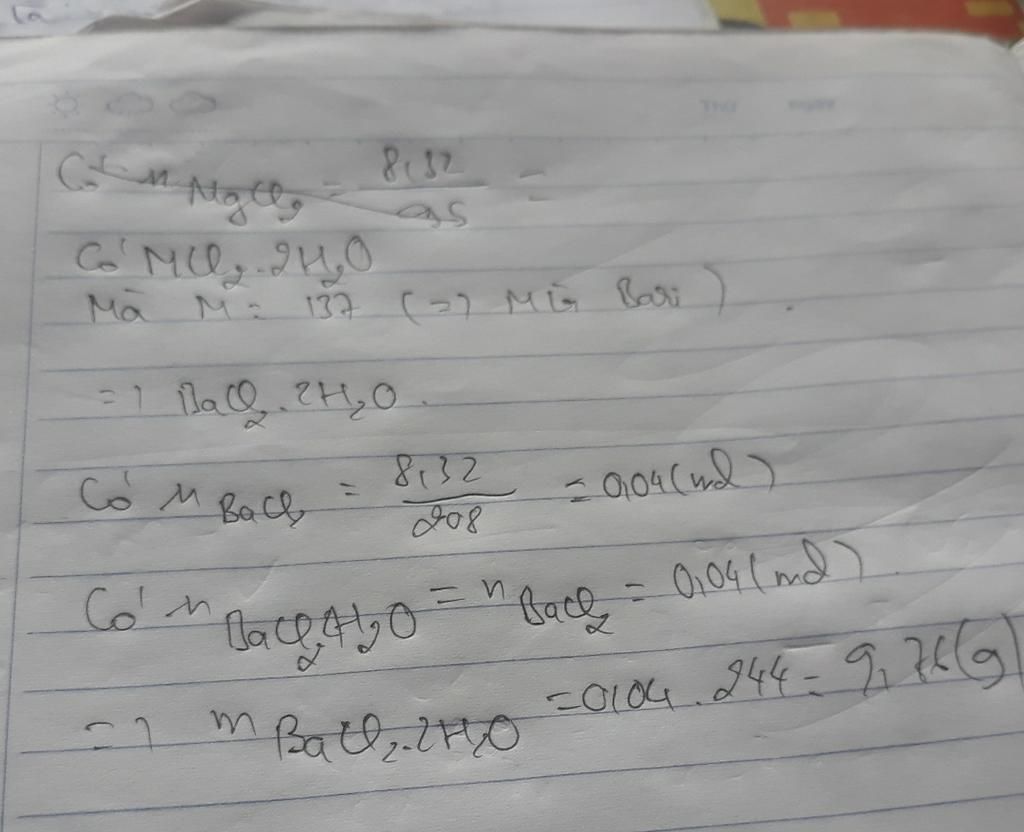 Có n MgCl2 = 8,32 / 95 =
Có MCl2.2H2O
Mà M = 137 (=> M là Bari)
=> BaCl2.2H2O.
Có n BaCl2 = 8,32 / 208 = 0,04 (mol)
Có n BaCl2.2H2O = n BaCl2 = 0,04 (mol)
=> m BaCl2.2H2O = 0,04 . 244 = 9,76 (g)